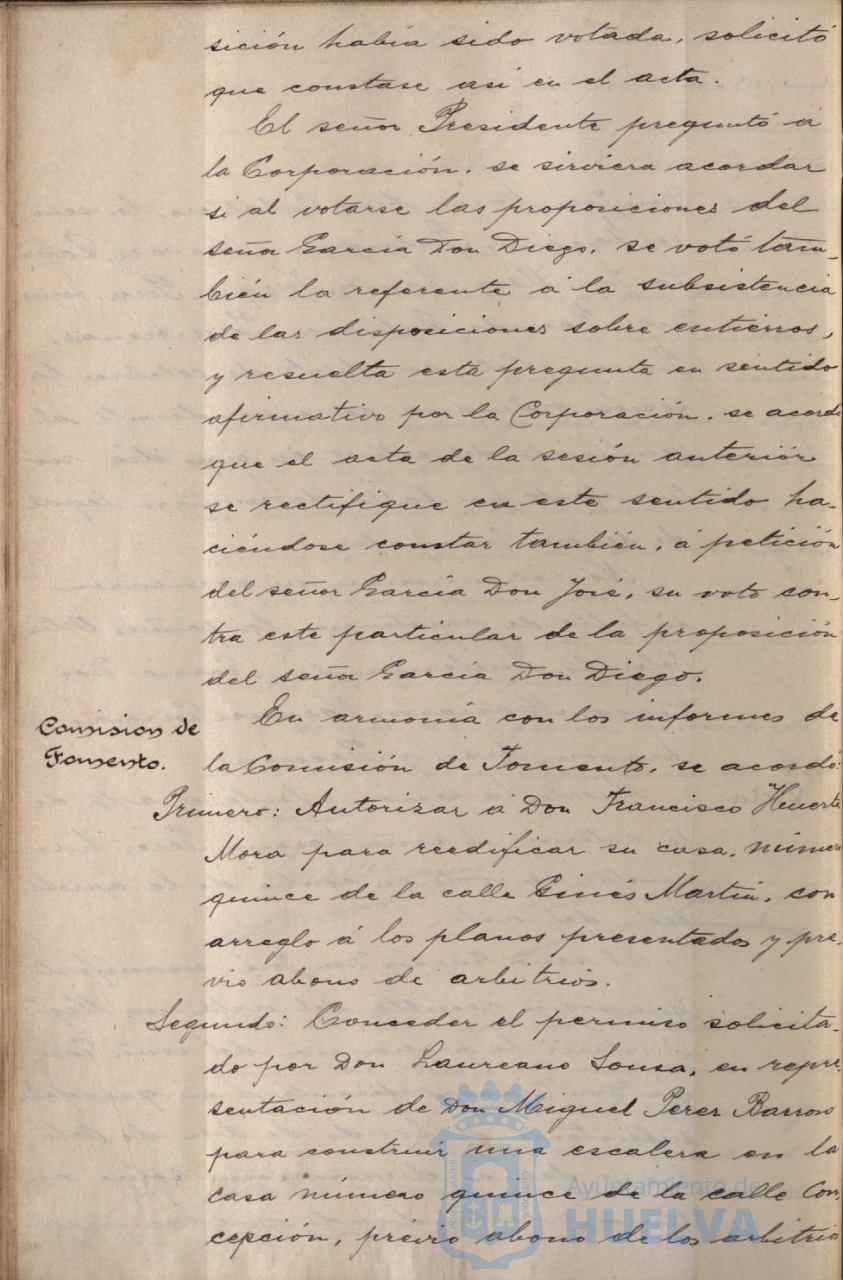 sición había sido votada, solicitó
que constase así en el acta.
El señor Presidente preguntó á
la Corporación, se sirviera acordar
si al votarse las proposiciones del
señor García Don Diego, se votó tam-
bién la referente á la subsistencia
de las disposiciones sobre entierros,
y resuelta esta pregunta en sentido
afirmativo por la Corporación, se acordó
que el acta de la sesión anterior
se rectifique en este sentido ha-
ciéndose constar también, á petición
del señor García Don José, su voto con-
tra este particular de la proposición
del señor García Don Diego.
Comision de
Fomento.
En armonía con los informes de
la Comisión de Fomento, se acordó:
Primero: Autorizar á Don Francisco
Mora para reedificar su casa, número
quince de la calle Ginés Martín, con
arreglo á los planos presentados y pre-
vio abono de arbitrios.
Segundo: Conceder el permiso solicita-
do por Don Laureano Sousa, en repre-
sentación de Don Miguel Perez Barroso
para construir una escalera en la
casa número quince de la calle Con-
cepción, previo abono de los arbitrio
Ayuntamiento de
HUELVA